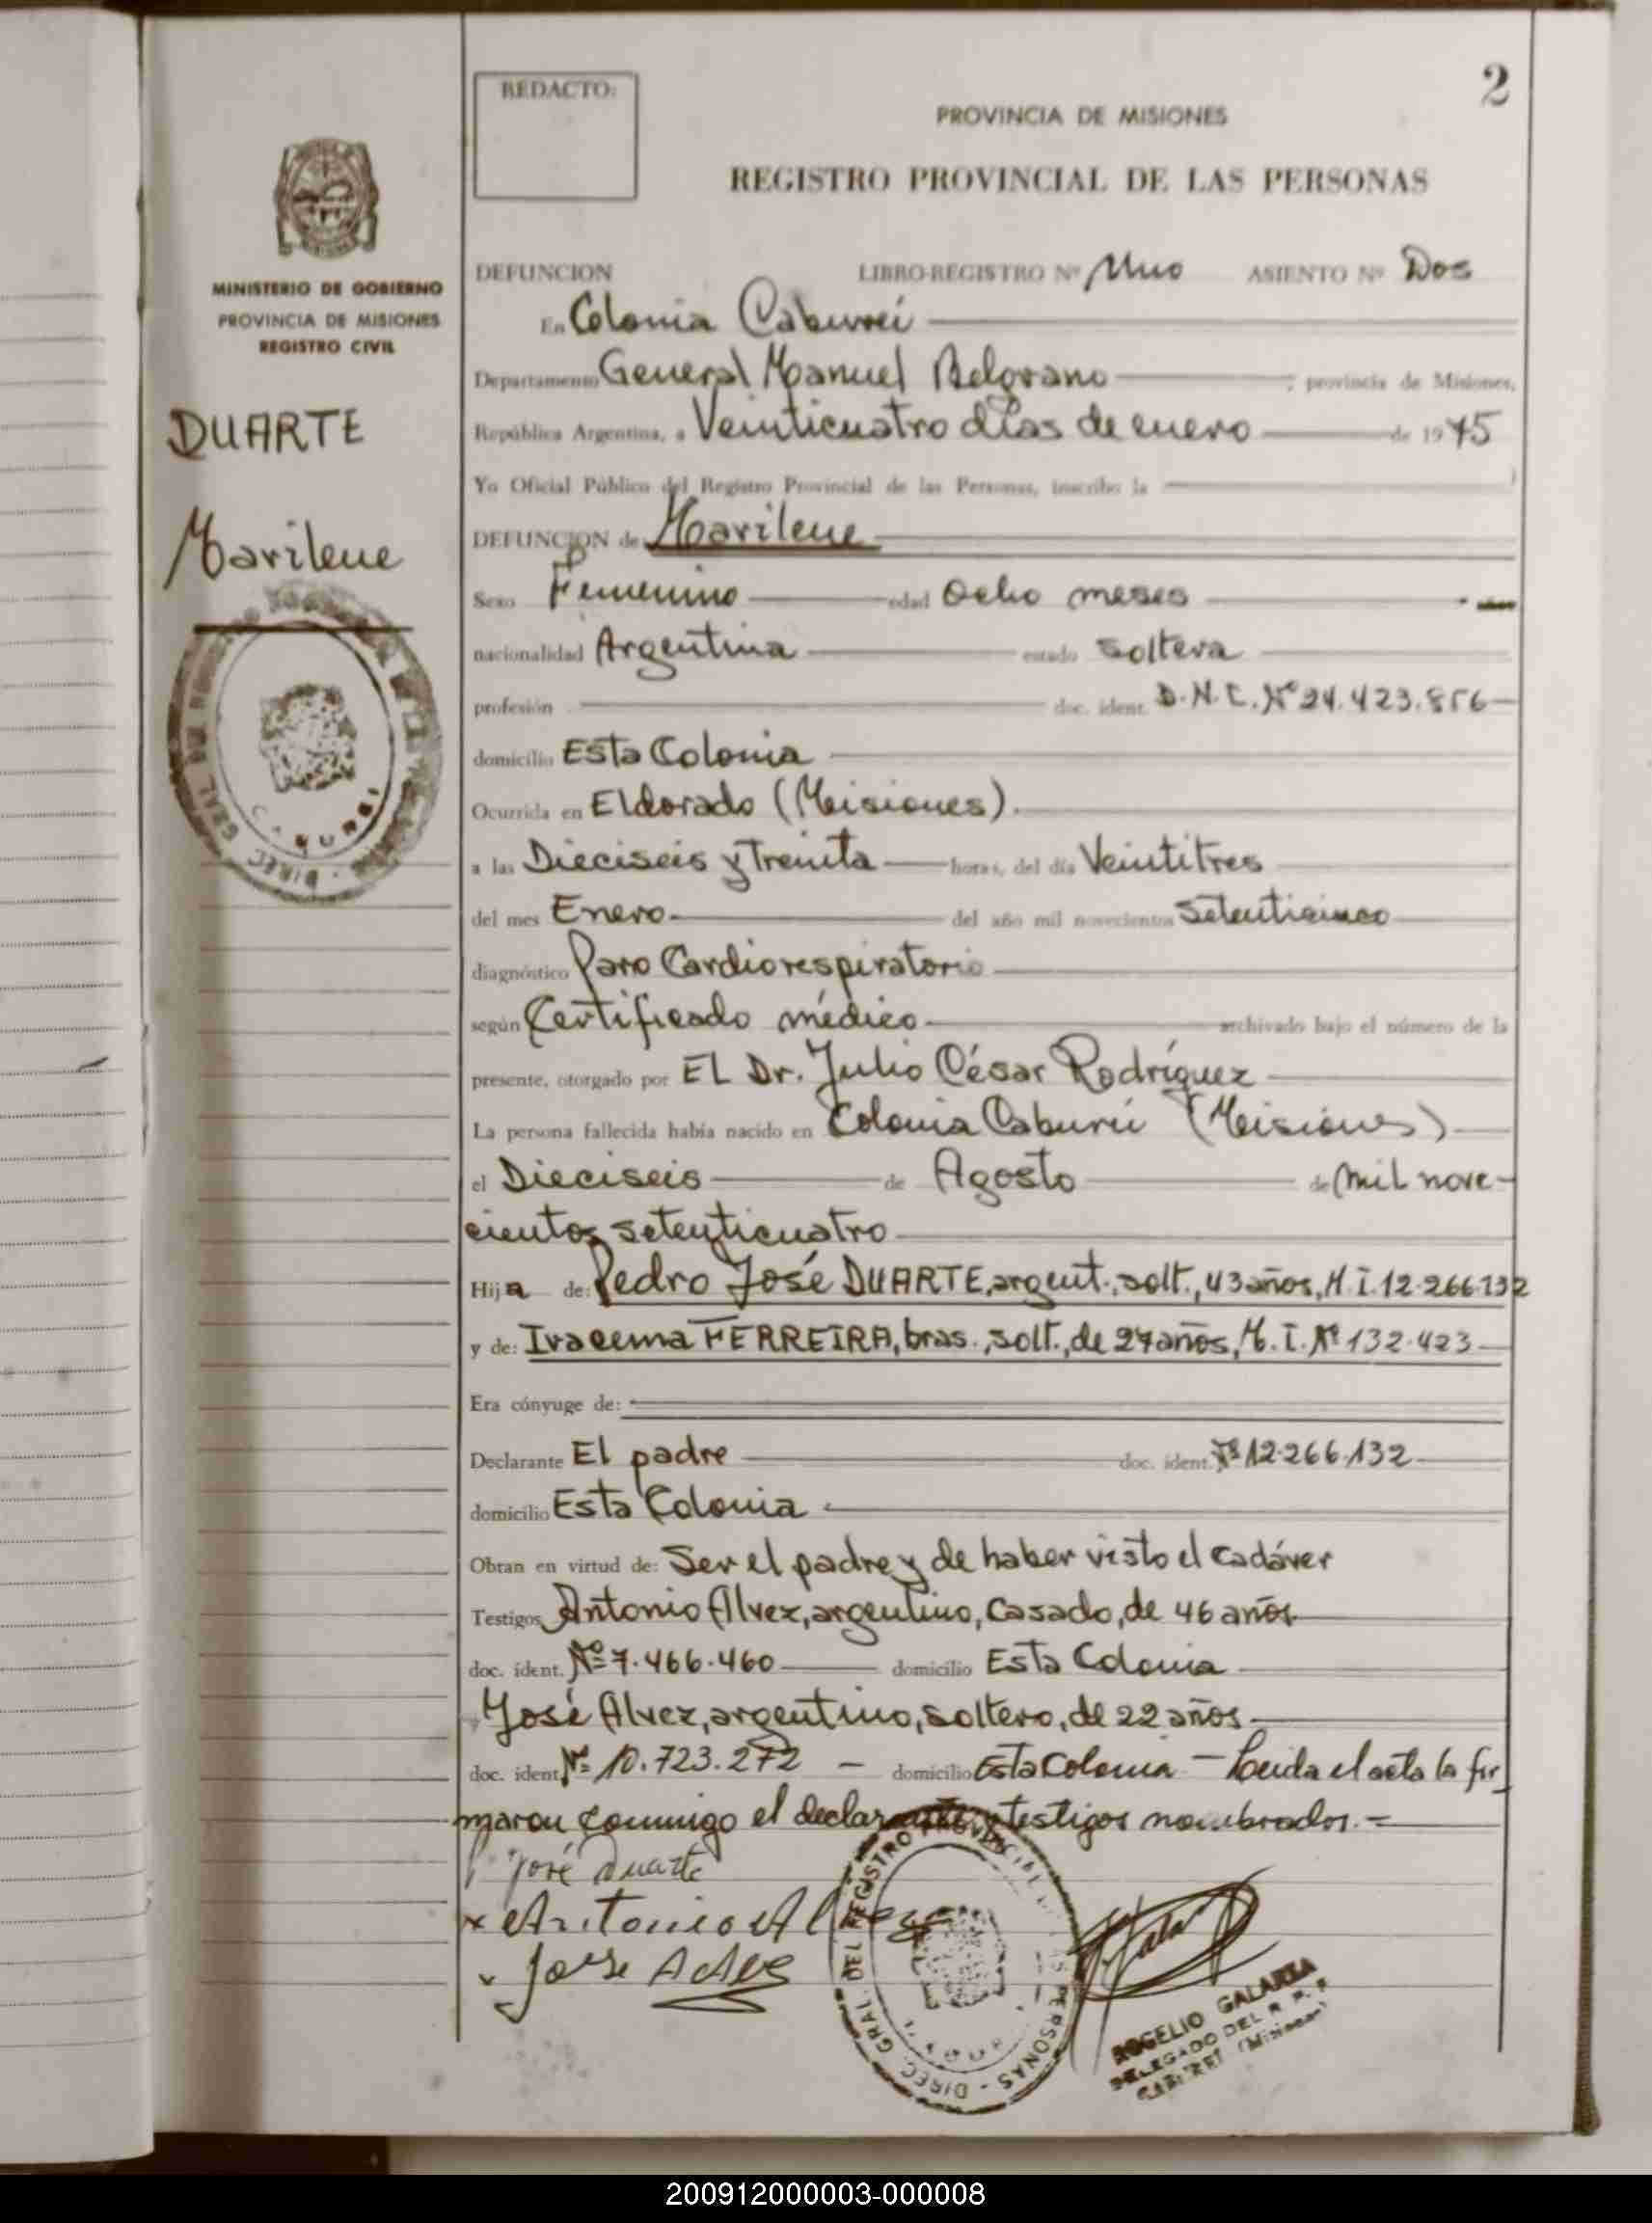 2
REDACTO:
PROVINCIA DE MISIONES
REGISTRO PROVINCIAL DE LAS PERSONAS
MINISTERIO DE GOBIERNO
PROVINCIA DE MISIONES
REGISTRO CIVIL
DUARTE
Marilene
DEFUNCION LIBRO-REGISTRO Nº Uno ASIENTO Nº Dos
En Colonia Caburei
Departamento General Manuel Belgrano ; provincia de Misiones,
República Argentina, a Veinticuatro días de enero de 1975
Yo Oficial Público del Registro Provincial de las Personas, inscribo la
DEFUNCION de Marilene
Sexo Femenino edad Ocho meses
nacionalidad Argentina estado Soltera
profesión doc. ident. D.N.I. Nº 24.423.856
domicilio Esta Colonia
Ocurrida en Eldorado (Misiones).
a las Dieciseis y Treinta horas, del día Veintitres
del mes Enero del año mil novecientos Setenticinco
diagnóstico Paro Cardiorespiratorio
según Certificado médico archivado bajo el número de la
presente, otorgado por EL Dr. Julio César Rodríguez
La persona fallecida había nacido en Colonia Caburei (Misiones)
el Dieciseis de Agosto de mil nove-
cientos setenticuatro
Hija de: Pedro José DUARTE, argent., solt., 43 años, M.I. 12.266.132
y de: Iracema FERREIRA, bras., solt., de 27 años, M.I. Nº 132.423
Era cónyuge de:
Declarante El padre doc. ident. Nº 12.266.132
domicilio Esta Colonia
Obran en virtud de: Ser el padre y de haber visto el cadáver
Testigos Antonio Alvez, argentino, Casado, de 46 años
doc. ident. Nº 7.466.460 domicilio Esta Colonia
José Alvez, argentino, soltero, de 22 años
doc. ident. Nº 10.723.272 — domicilio Esta Colonia — Leida el acta la fir
maron conmigo el declarante y testigos nombrados.=
José Duarte
x Antonio Alvez
Jose
DIREC. GRAL. DEL REGISTRO PROVINCIAL DE LAS PERSONAS
ROGELIO GALARZA
DELEGADO DEL R. P. P.
CABUREI (Misiones)
200912000003-000008